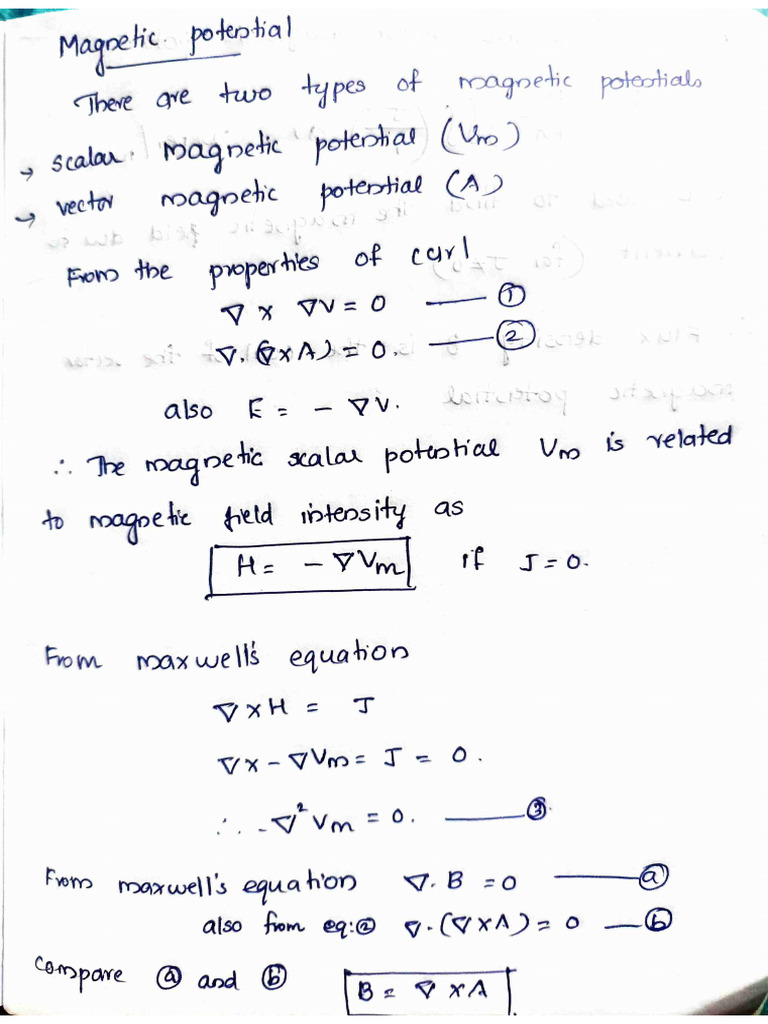 Magnetic potential
There are two types of magnetic potentials
→ scalar magnetic potential (Vm)
→ vector magnetic potential (A)
From the properties of curl
∇ × ∇V = 0 —— ①
∇. (∇×A) = 0. —— ②
also E = - ∇V.
∴ The magnetic scalar potential Vm is related
to magnetic field intensity as
H = - ∇Vm if J = 0.
From maxwell's equation
∇×H = J
∇×-∇Vm = J = 0.
∴ -∇²Vm = 0. —— ③
From maxwell's equation ∇. B = 0 —— ⓐ
also from eq:② ∇.(∇×A) = 0 — ⓑ
Compare ⓐ and ⓑ B = ∇ ×A